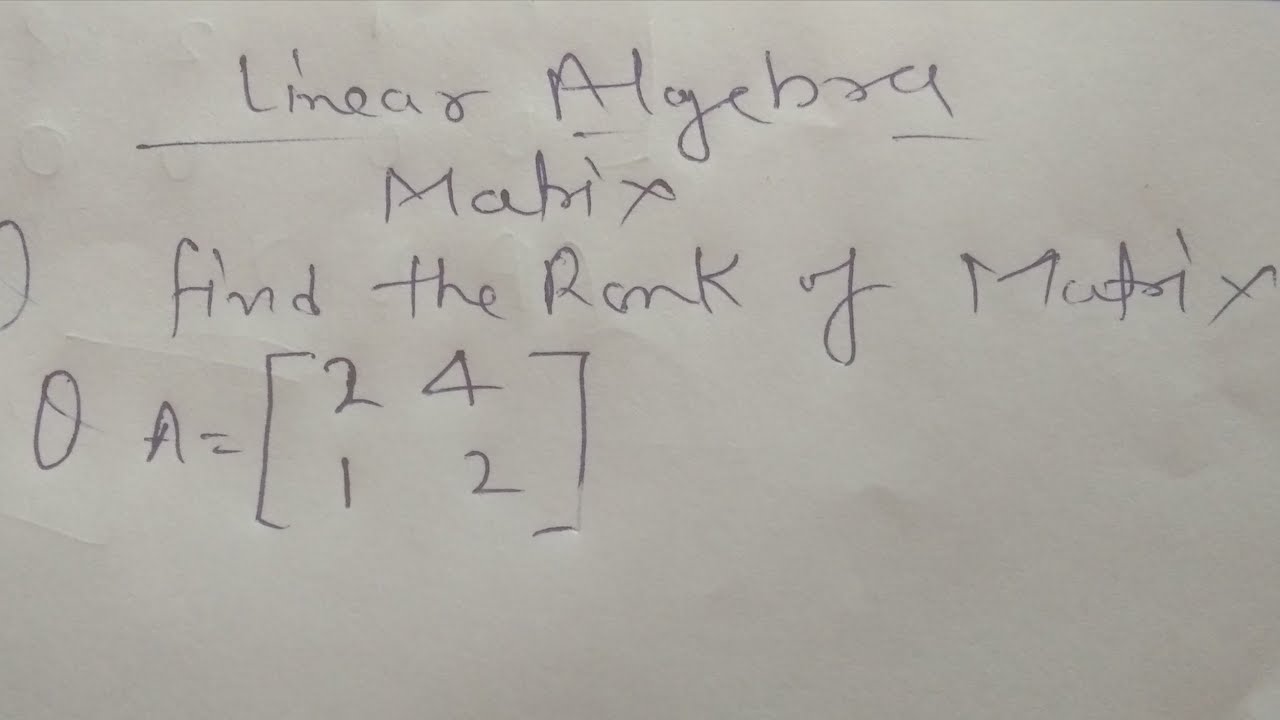 Linear Algebra
Matrix
) find the Rank of Matrix
0 A = [ 2 4
1 2 ]